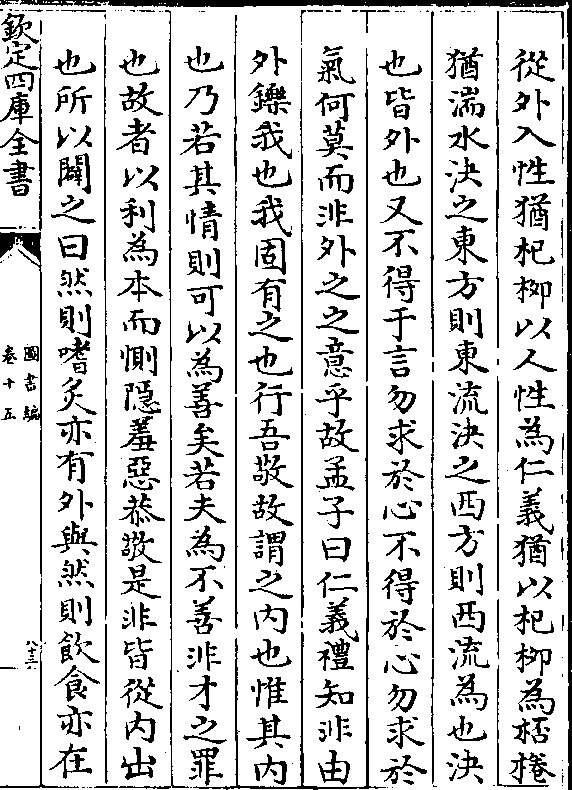 從外入性猶杞柳以人性為仁義猶以杞柳為桮棬
猶湍水決之東方則東流決之西方則西流為也決
也皆外也又不得于言勿求於心不得於心勿求於
氣何莫而非外之之意乎故孟子曰仁義禮知非由
外鑠我也我固有之也行吾敬故謂之内也惟其内
也乃若其情則可以為善矣若夫為不善非才之罪
也故者以利為本而惻隱羞惡恭敬是非皆從内出
也所以闢之曰然則嗜炙亦有外與然則飲食亦在
欽定四庫全書
圖書編
卷十五
八十三